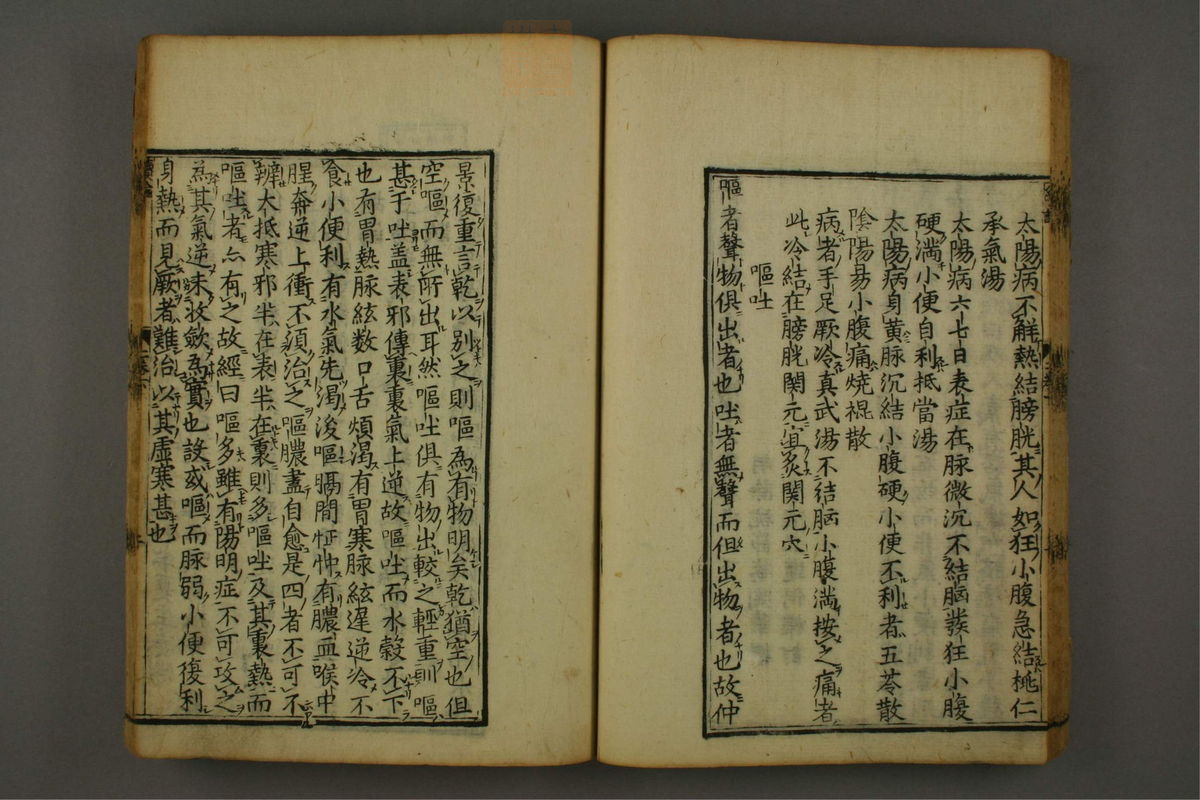 太陽病不解熱結膀胱其人如狂小腹急結桃仁
承氣湯
太陽病六七日表症在脉微沉不結胸發狂小腹
硬満小便自利抵當湯
太陽病身黄脉沉結小腹硬小便不利者五苓散
陰陽易小腹痛焼裩散
病者手足厥冷真武湯不結胸小腹満按之痛者
此冷結在膀胱関元宜灸関元穴
嘔吐
嘔者聲物俱出者也吐者無聲而但出物者也故仲
景復重言乾以別之則嘔為有物明矣乾猶空也但
空嘔而無所出耳然嘔吐俱有物出較之輕重則嘔
甚于吐盖表邪傳裏裏氣上逆故嘔吐而水穀不下
也有胃熱脉絃数口舌煩渇有胃寒脉絃遅逆冷不
食小便利有水氣先渇後嘔膈間怔忡有膿血喉中
腥奔逆上衝不須治之嘔膿盡自愈是四者不可不
辨大抵寒邪半在表半在裏則多嘔吐及其裏熱而
嘔吐者亦有之故經曰嘔多雖有陽明症不可攻之
為其氣逆未收斂為實也設或嘔而脉弱小便復利
身熱而見厥者難治以其虚寒甚也